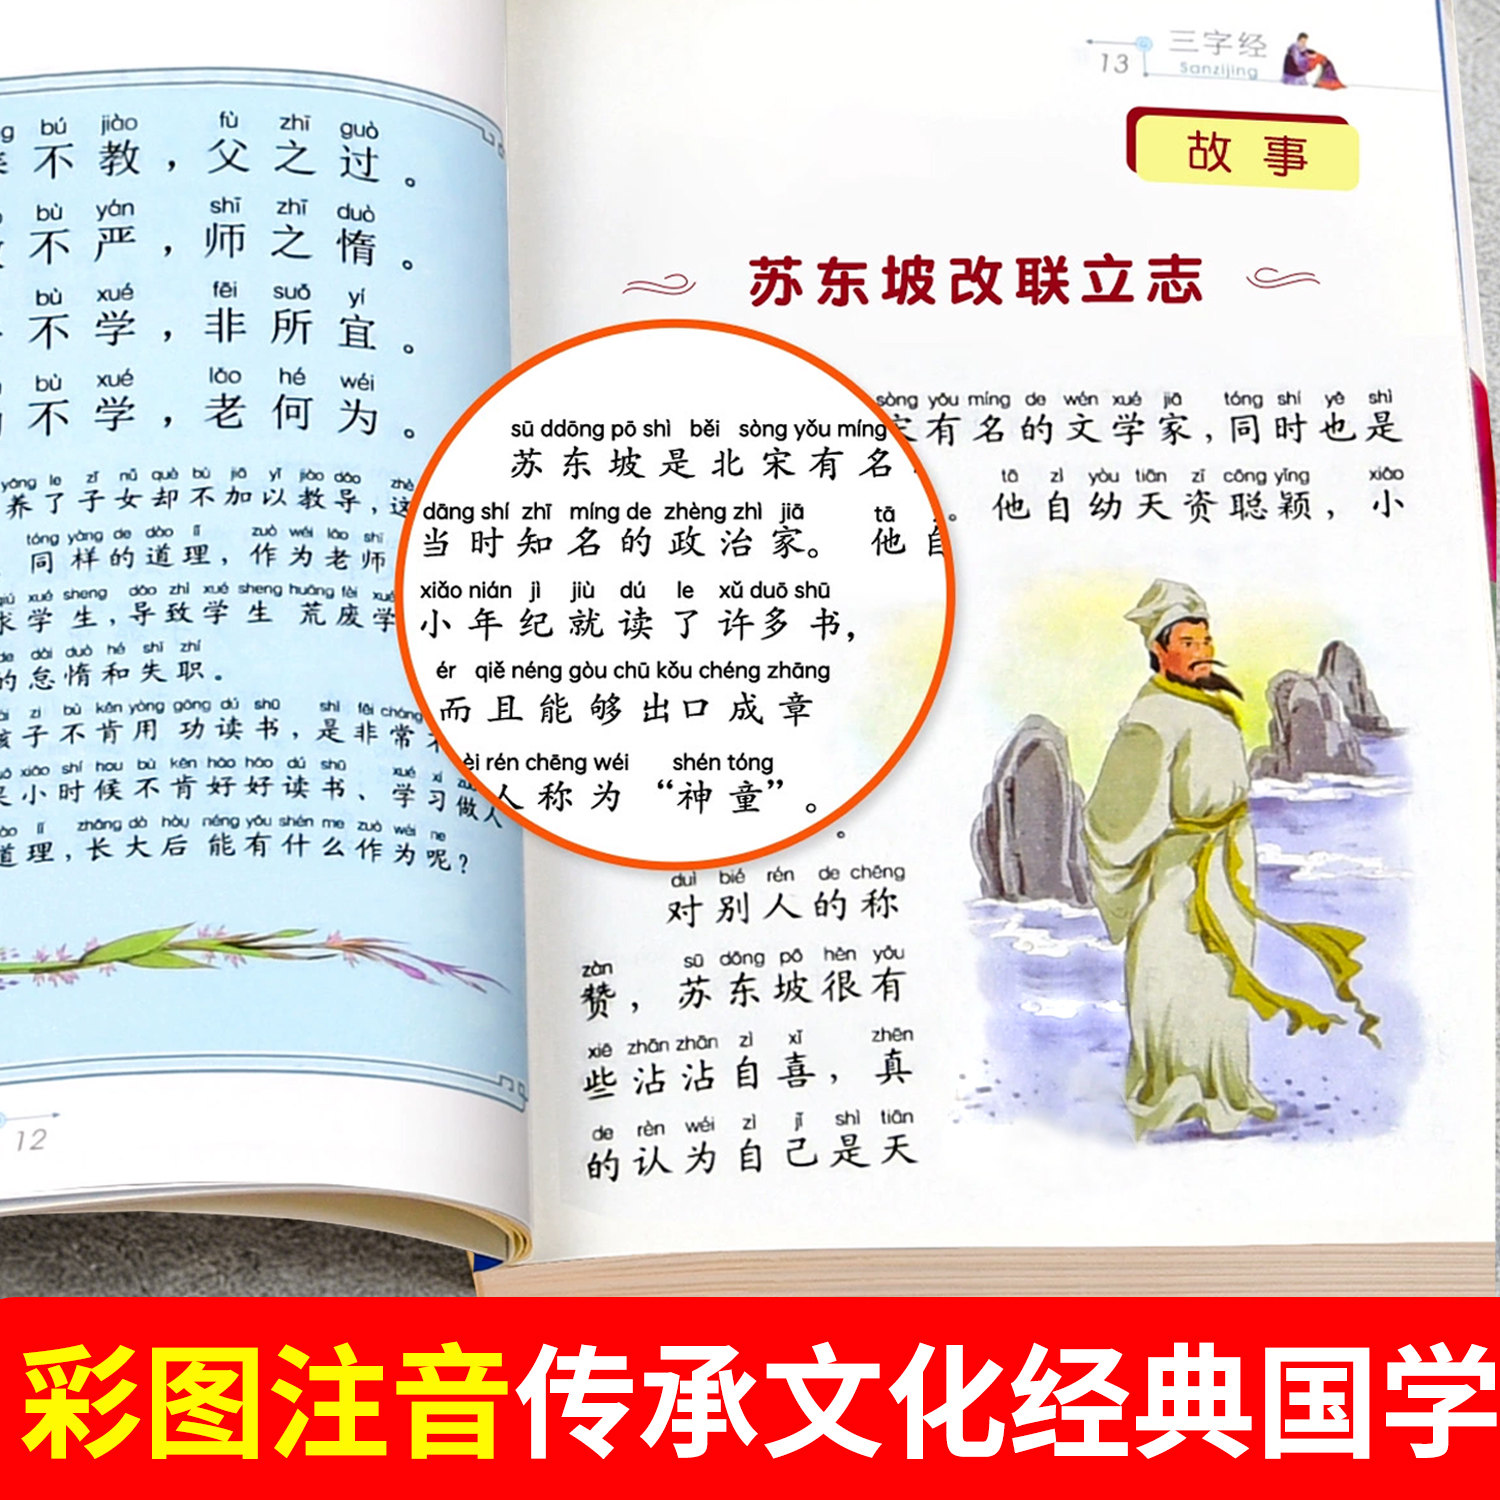 bú jiào fù zhī guò
不教，父之过。
bù yán shī zhī duò
不严，师之惰。
bù xué fēi suǒ yí
不学，非所宜。
bù xué lǎo hé wéi
不学，老何为。
yǎng le zǐ nǚ què bù jiā yǐ jiào dǎo zhè
养了子女却不加以教导，这
tóng yàng de dào lǐ zuò wéi lǎo shī
同样的道理，作为老师
xué sheng dǎo zhì xué sheng huāng fèi xué
求学生，导致学生荒废学
de dài duò hé shī zhí
的怠惰和失职。
zi bù kěn yòng gōng dú shū shì fēi cháng
孩子不肯用功读书，是非常
xiǎo shí hou bù kěn hǎo hǎo dú shū xué xí
小时候不肯好好读书、学习做人
lǐ zhǎng dà hòu néng yǒu shén me zuò wéi ne
道理，长大后能有什么作为呢？
12
13
三字经
Sanzijing
故事
苏东坡改联立志
sòng yǒu míng de wén xué jiā tóng shí yě shì
宋有名的文学家，同时也是
tā zì yòu tiān zī cōng yǐng xiǎo
。他自幼天资聪颖，小
sū ddōng pō shì běi sòng yǒu míng
苏东坡是北宋有名
dāng shí zhī míng de zhèng zhì jiā tā
当时知名的政治家。他自
xiǎo nián jì jiù dú le xǔ duō shū
小年纪就读了许多书，
ér qiě néng gòu chū kǒu chéng zhāng
而且能够出口成章
èi rén chēng wéi shén tóng
人称为“神童”。
duì bié rén de chēng
对别人的称
zàn sū dōng pō hěn yǒu
赞，苏东坡很有
xiē zhān zhān zì xǐ zhēn
些沾沾自喜，真
de rèn wéi zì jǐ shì tiān
的认为自己是天
彩图注音传承文化经典国学